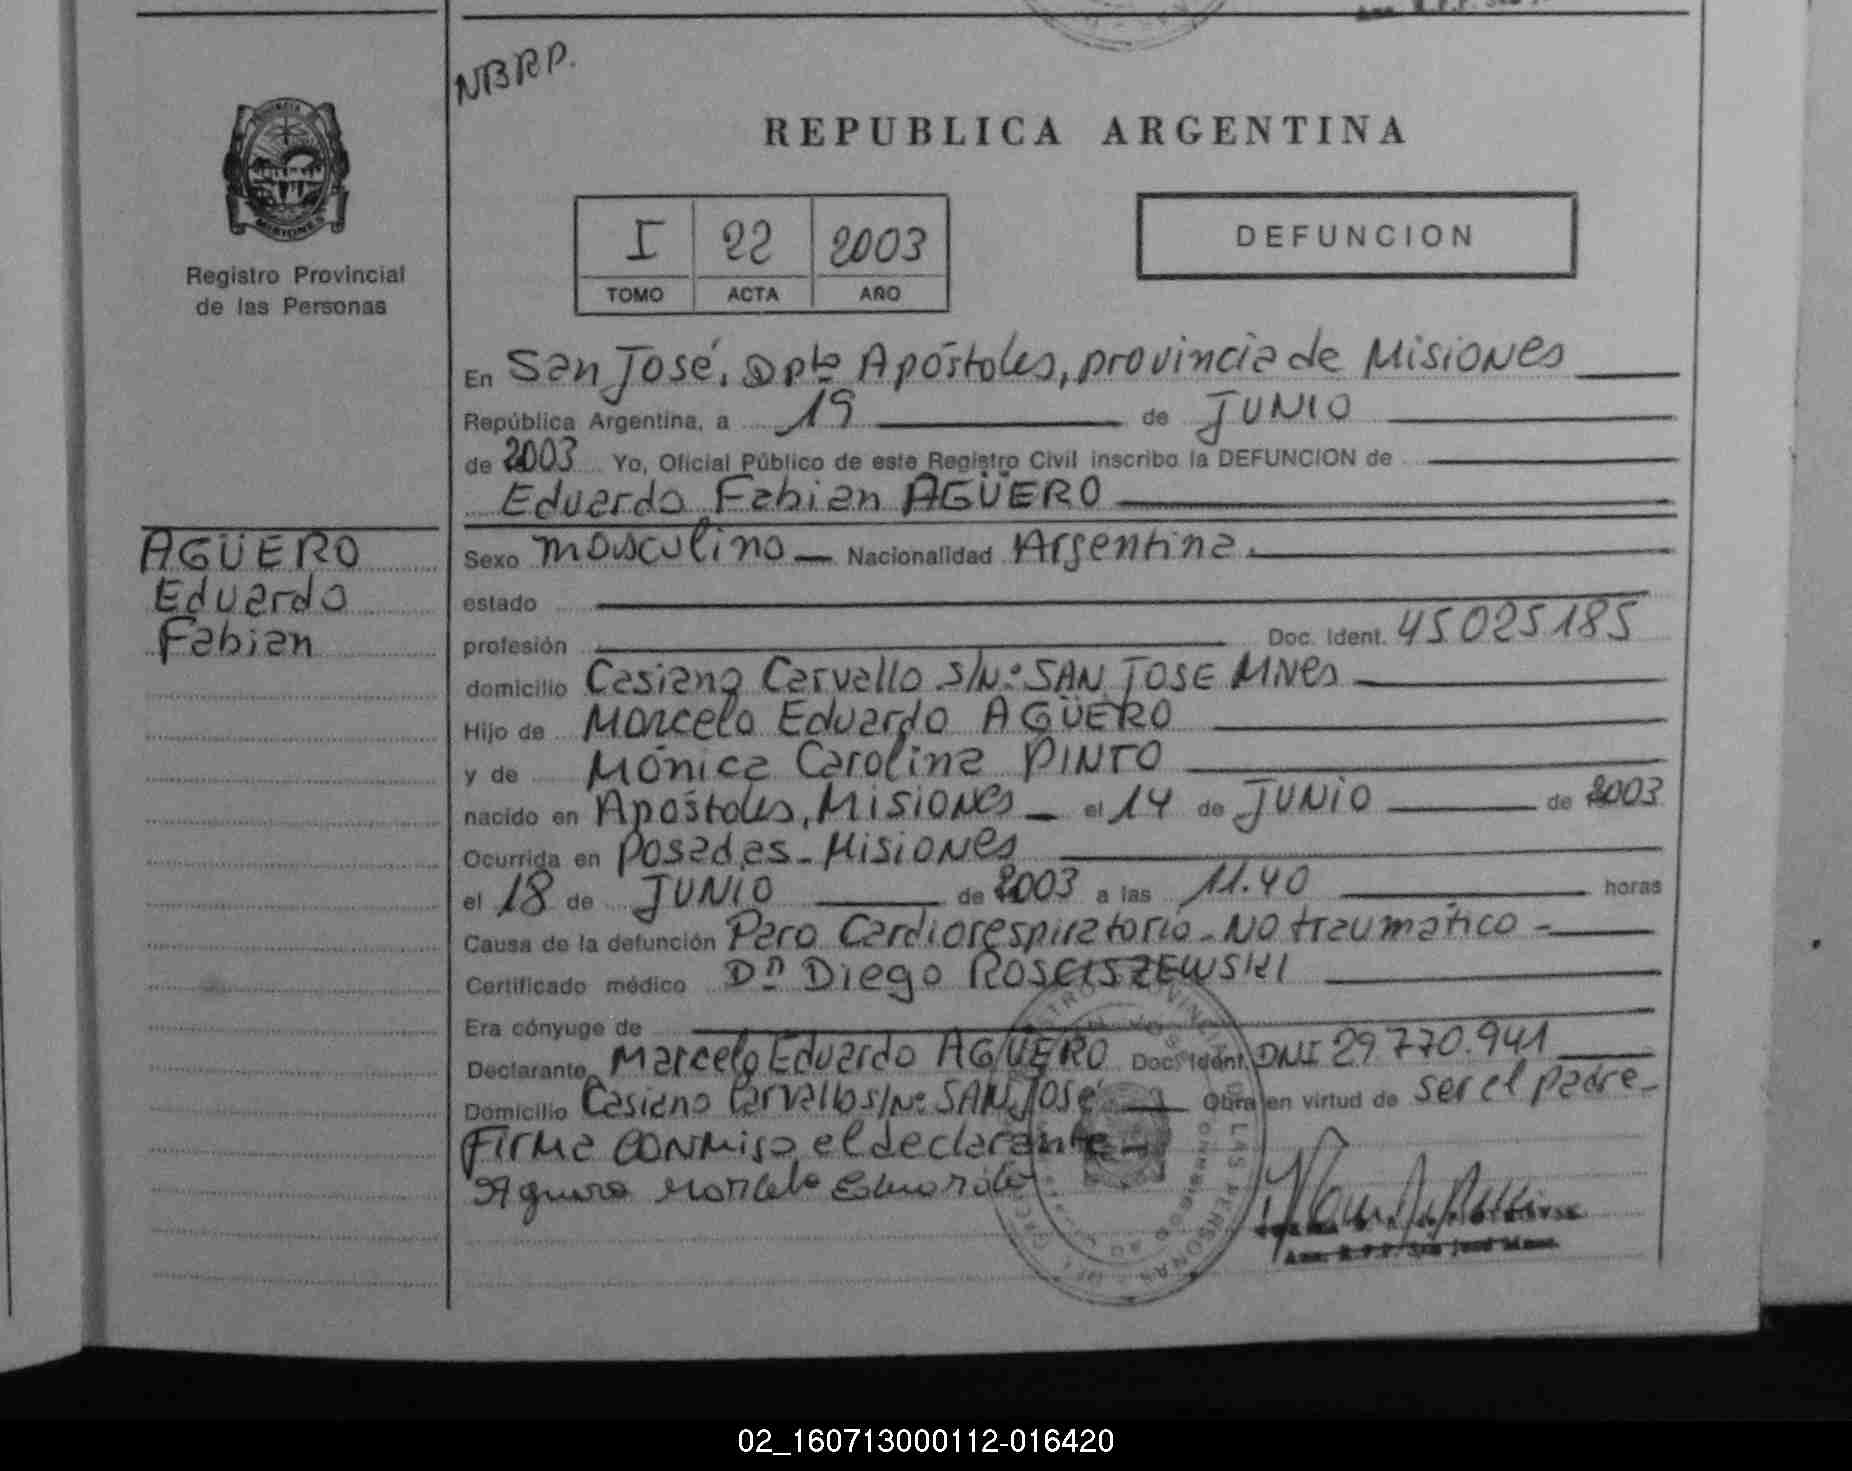 NBRP.
REPUBLICA ARGENTINA
PROVINCIA
MISIONES
Registro Provincial
de las Personas
I 22 2003
TOMO ACTA AÑO
DEFUNCION
En San José, Dpto Apóstoles, provincia de Misiones
República Argentina, a 19 de JUNIO
de 2003 Yo, Oficial Público de este Registro Civil inscribo la DEFUNCION de
Eduardo Fabian AGÜERO
AGÜERO
Eduardo
Fabian
Sexo masculino Nacionalidad Argentina.
estado
profesión Doc. Ident. 45025185
domicilio Casiano Carvallo s/Nº SAN JOSE MNes
Hijo de Marcelo Eduardo AGÜERO
y de Mónica Carolina PINTO
nacido en Apóstoles, Misiones el 14 de JUNIO de 2003
Ocurrida en Posadas - Misiones
el 18 de JUNIO de 2003 a las 11.40 horas
Causa de la defunción Paro Cardiorespiratorio - No traumático -
Certificado médico Dn Diego ROSCISZEWSKI
Era cónyuge de
Declarante Marcelo Eduardo AGÜERO Doc. Ident. DNI 29.770.941
Domicilio Casiano Carvallo s/Nº SAN José Obra en virtud de ser el padre-
Firma conmigo el declarante
Aguero Marcelo Eduardo
San José
02_160713000112-016420